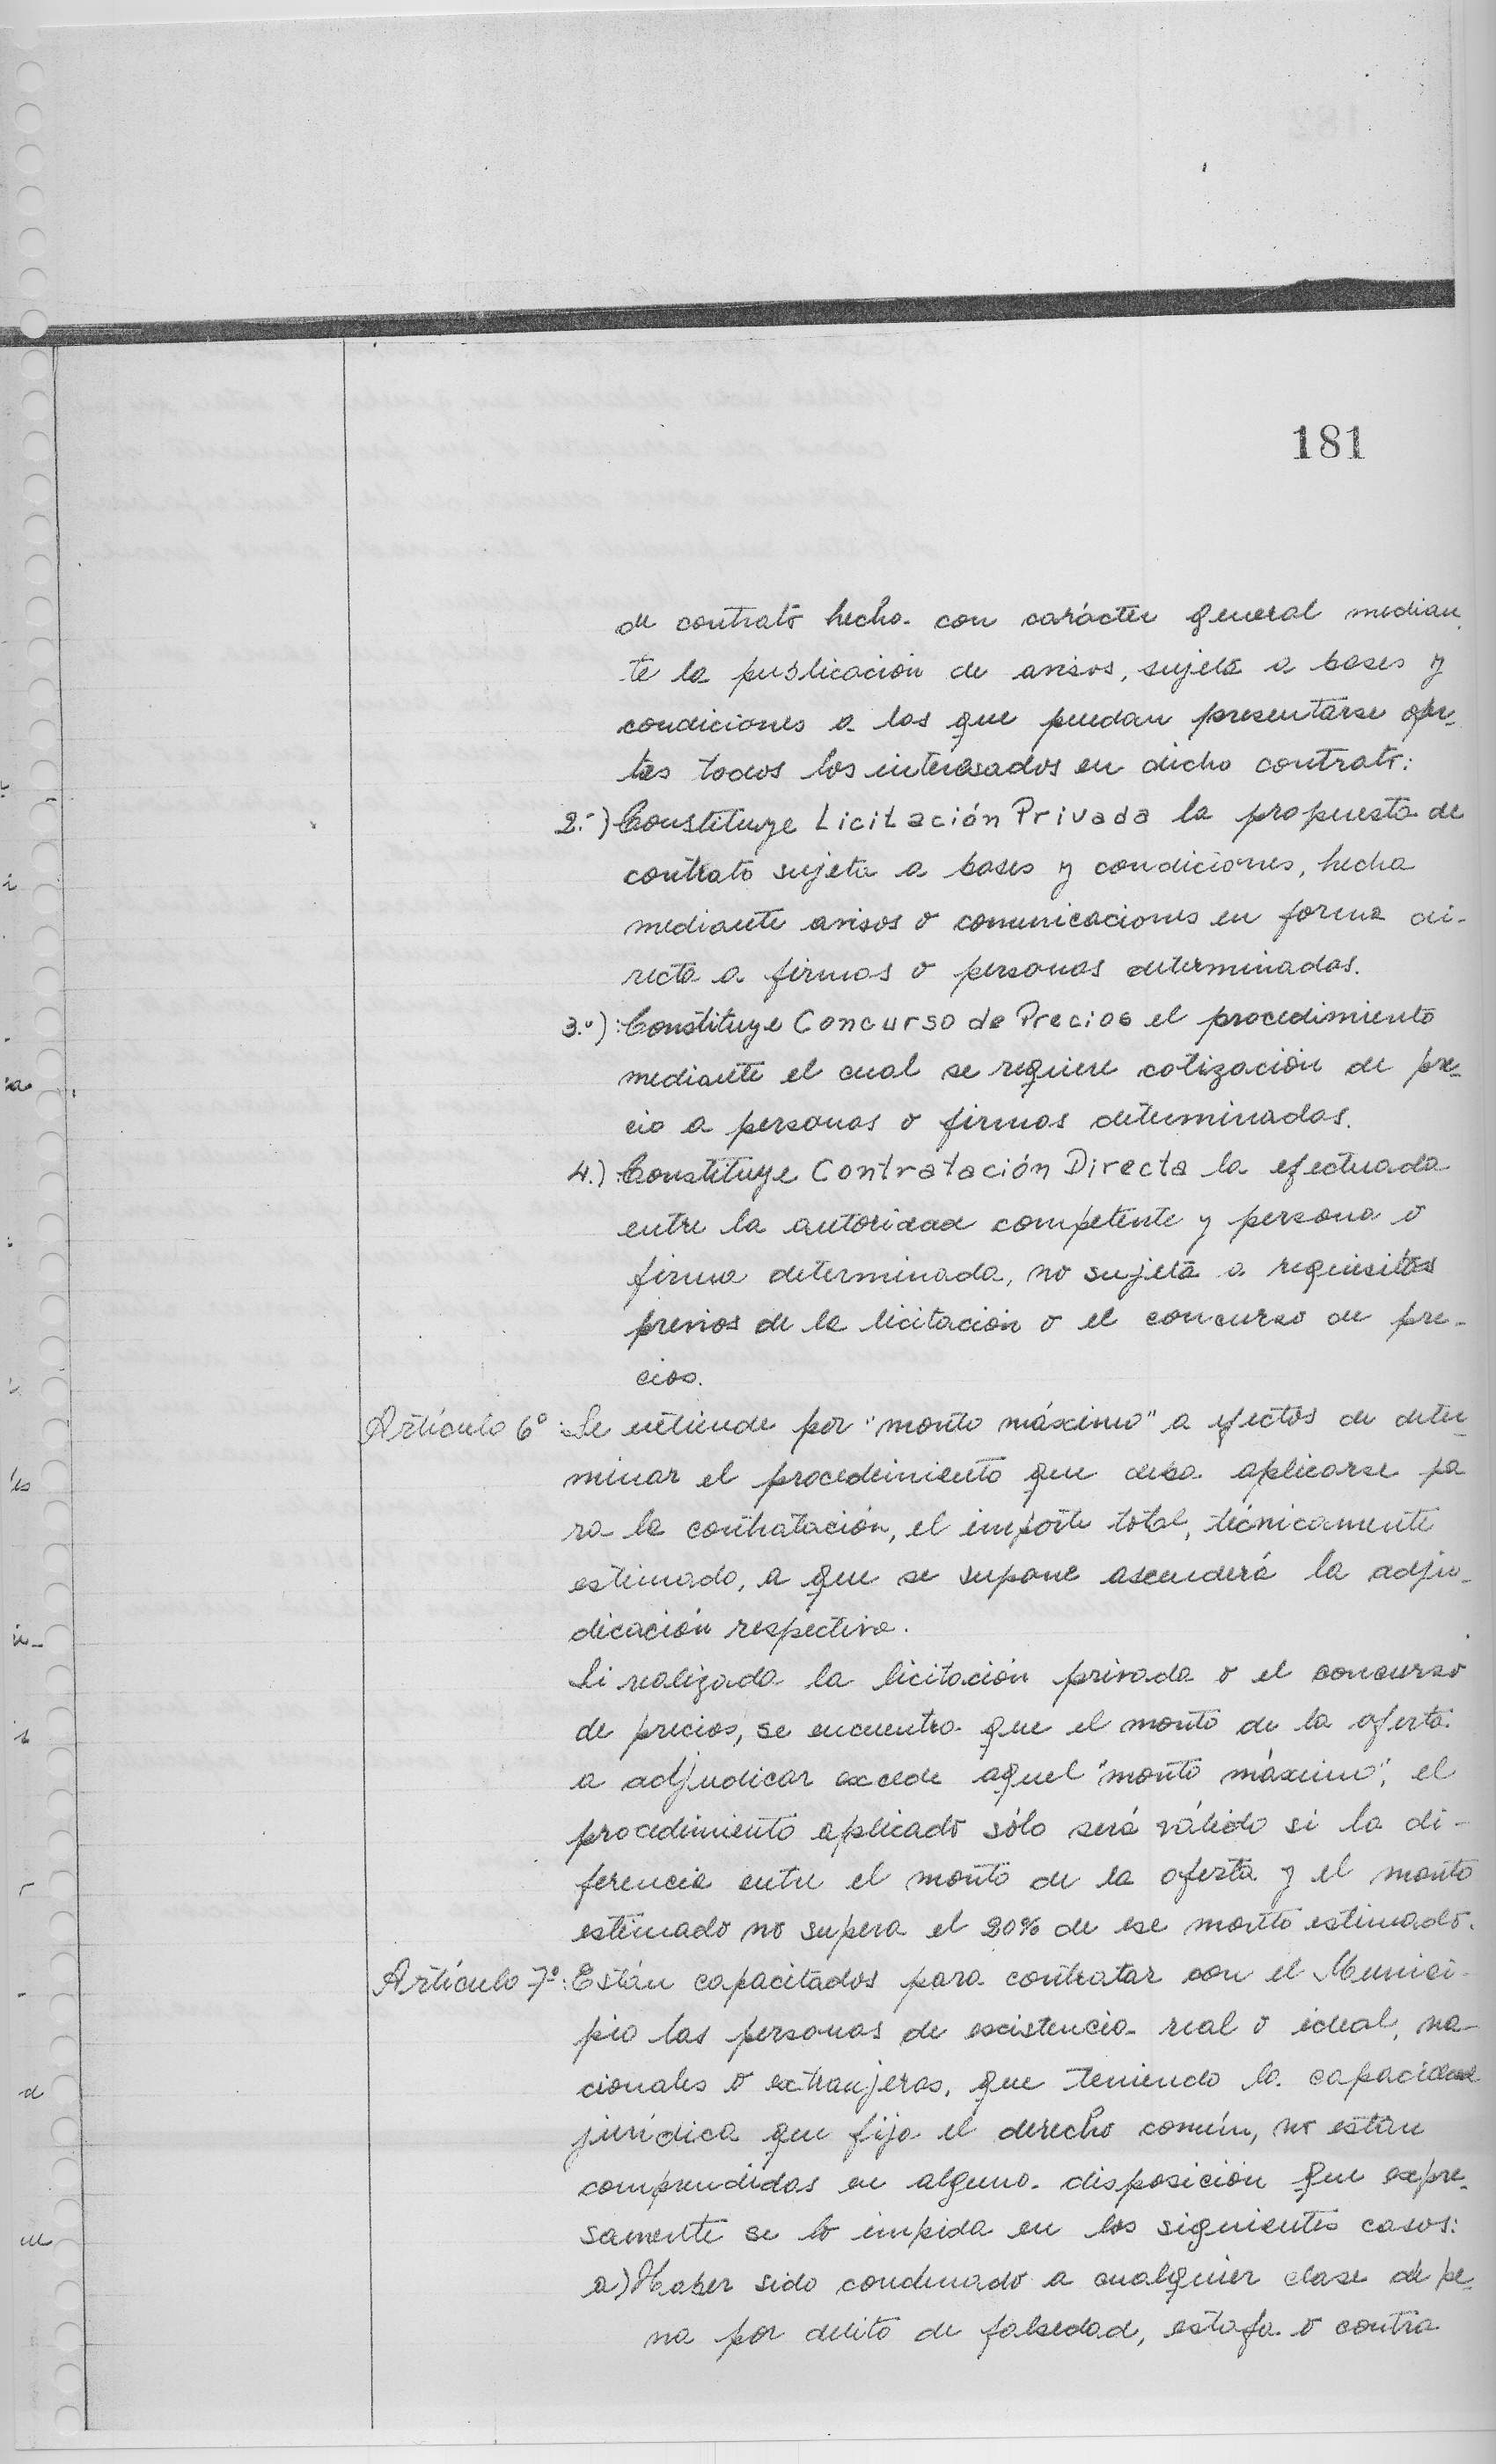 181
de contrato hecho con carácter general median
te la publicación de avisos, sujeta a bases y
condiciones a las que puedan presentarse ofer-
tas todos los interesados en dicho contrato:
2.-) Constituye Licitación Privada la propuesta de
contrato sujeta a bases y condiciones, hecha
mediante avisos o comunicaciones en forma di-
recta a firmas o personas determinadas.
3.º): Constituye Concurso de Precios el procedimiento
mediante el cual se requiere cotización de pre-
cio a personas o firmas determinadas.
4.): Constituye Contratación Directa la efectuada
entre la autoridad competente y persona o
firma determinada, no sujeta a requisitos
previos de la licitación o el concurso de pre-
cios.
Artículo 6º: Se entiende por "monto máximo" a efectos de deter-
minar el procedimiento que deba aplicarse pa
ra la contratación, el importe total, técnicamente
estimado, a que se supone ascenderá la adju-
dicación respectiva.
Si realizada la licitación privada o el concurso
de precios, se encuentra que el monto de la oferta
a adjudicar excede aquel "monto máximo", el
procedimiento aplicado sólo será válido si la di-
ferencia entre el monto de la oferta y el monto
estimado no supera el 20% de ese monto estimado.
Artículo 7º: Están capacitados para contratar con el Munici-
pio las personas de existencia real o ideal, na-
cionales o extranjeras, que teniendo la capacidad
jurídica que fija el derecho común, no están
comprendidas en alguna disposición que expre-
samente se lo impida en los siguientes casos:
a) Haber sido condenado a cualquier clase de pe-
na por delito de falsedad, estafa o contra